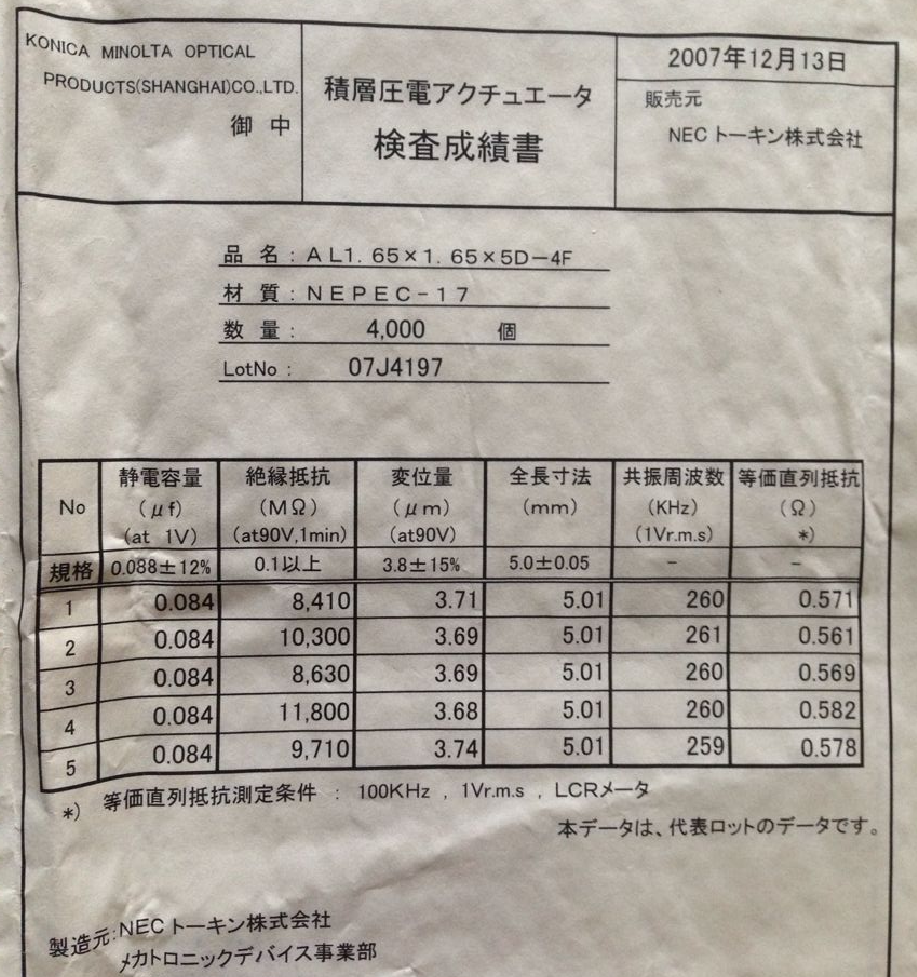 KONICA MINOLTA OPTICAL
PRODUCTS(SHANGHAI)CO.,LTD.
御 中
積層圧電アクチュエータ
検査成績書
2007年12月13日
販売元
NECトーキン株式会社
品 名 : AL1. 65×1. 65×5D-4F
材 質 : NEPEC-17
数 量 : 4,000 個
LotNo : 07J4197
No 静電容量 (μf) (at 1V) 絶縁抵抗 (MΩ) (at90V,1min) 変位量 (μm) (at90V) 全長寸法 (mm) 共振周波数 (KHz) (1Vr.m.s) 等価直列抵抗 (Ω) *)
規格 0.088±12% 0.1以上 3.8±15% 5.0±0.05 - -
1 0.084 8,410 3.71 5.01 260 0.571
2 0.084 10,300 3.69 5.01 261 0.561
3 0.084 8,630 3.69 5.01 260 0.569
4 0.084 11,800 3.68 5.01 260 0.582
5 0.084 9,710 3.74 5.01 259 0.578
*) 等価直列抵抗測定条件 : 100KHz , 1Vr.m.s , LCRメータ
本データは、代表ロットのデータです。
製造元:NECトーキン株式会社
メカトロニックデバイス事業部